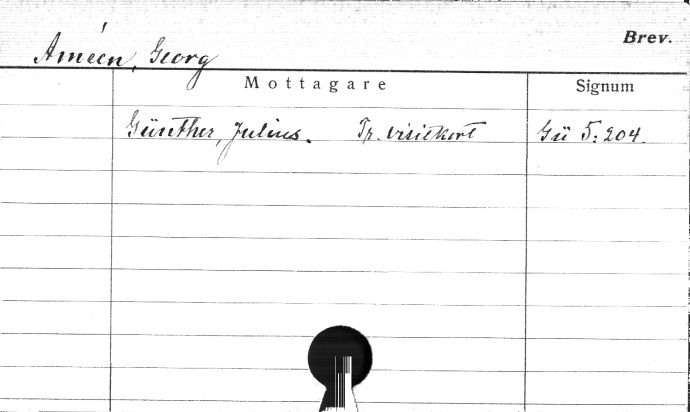 Brev.
Améen, Georg
Mottagare Signum
Günther, Julius. Tr. visitkort Gü 5:204.